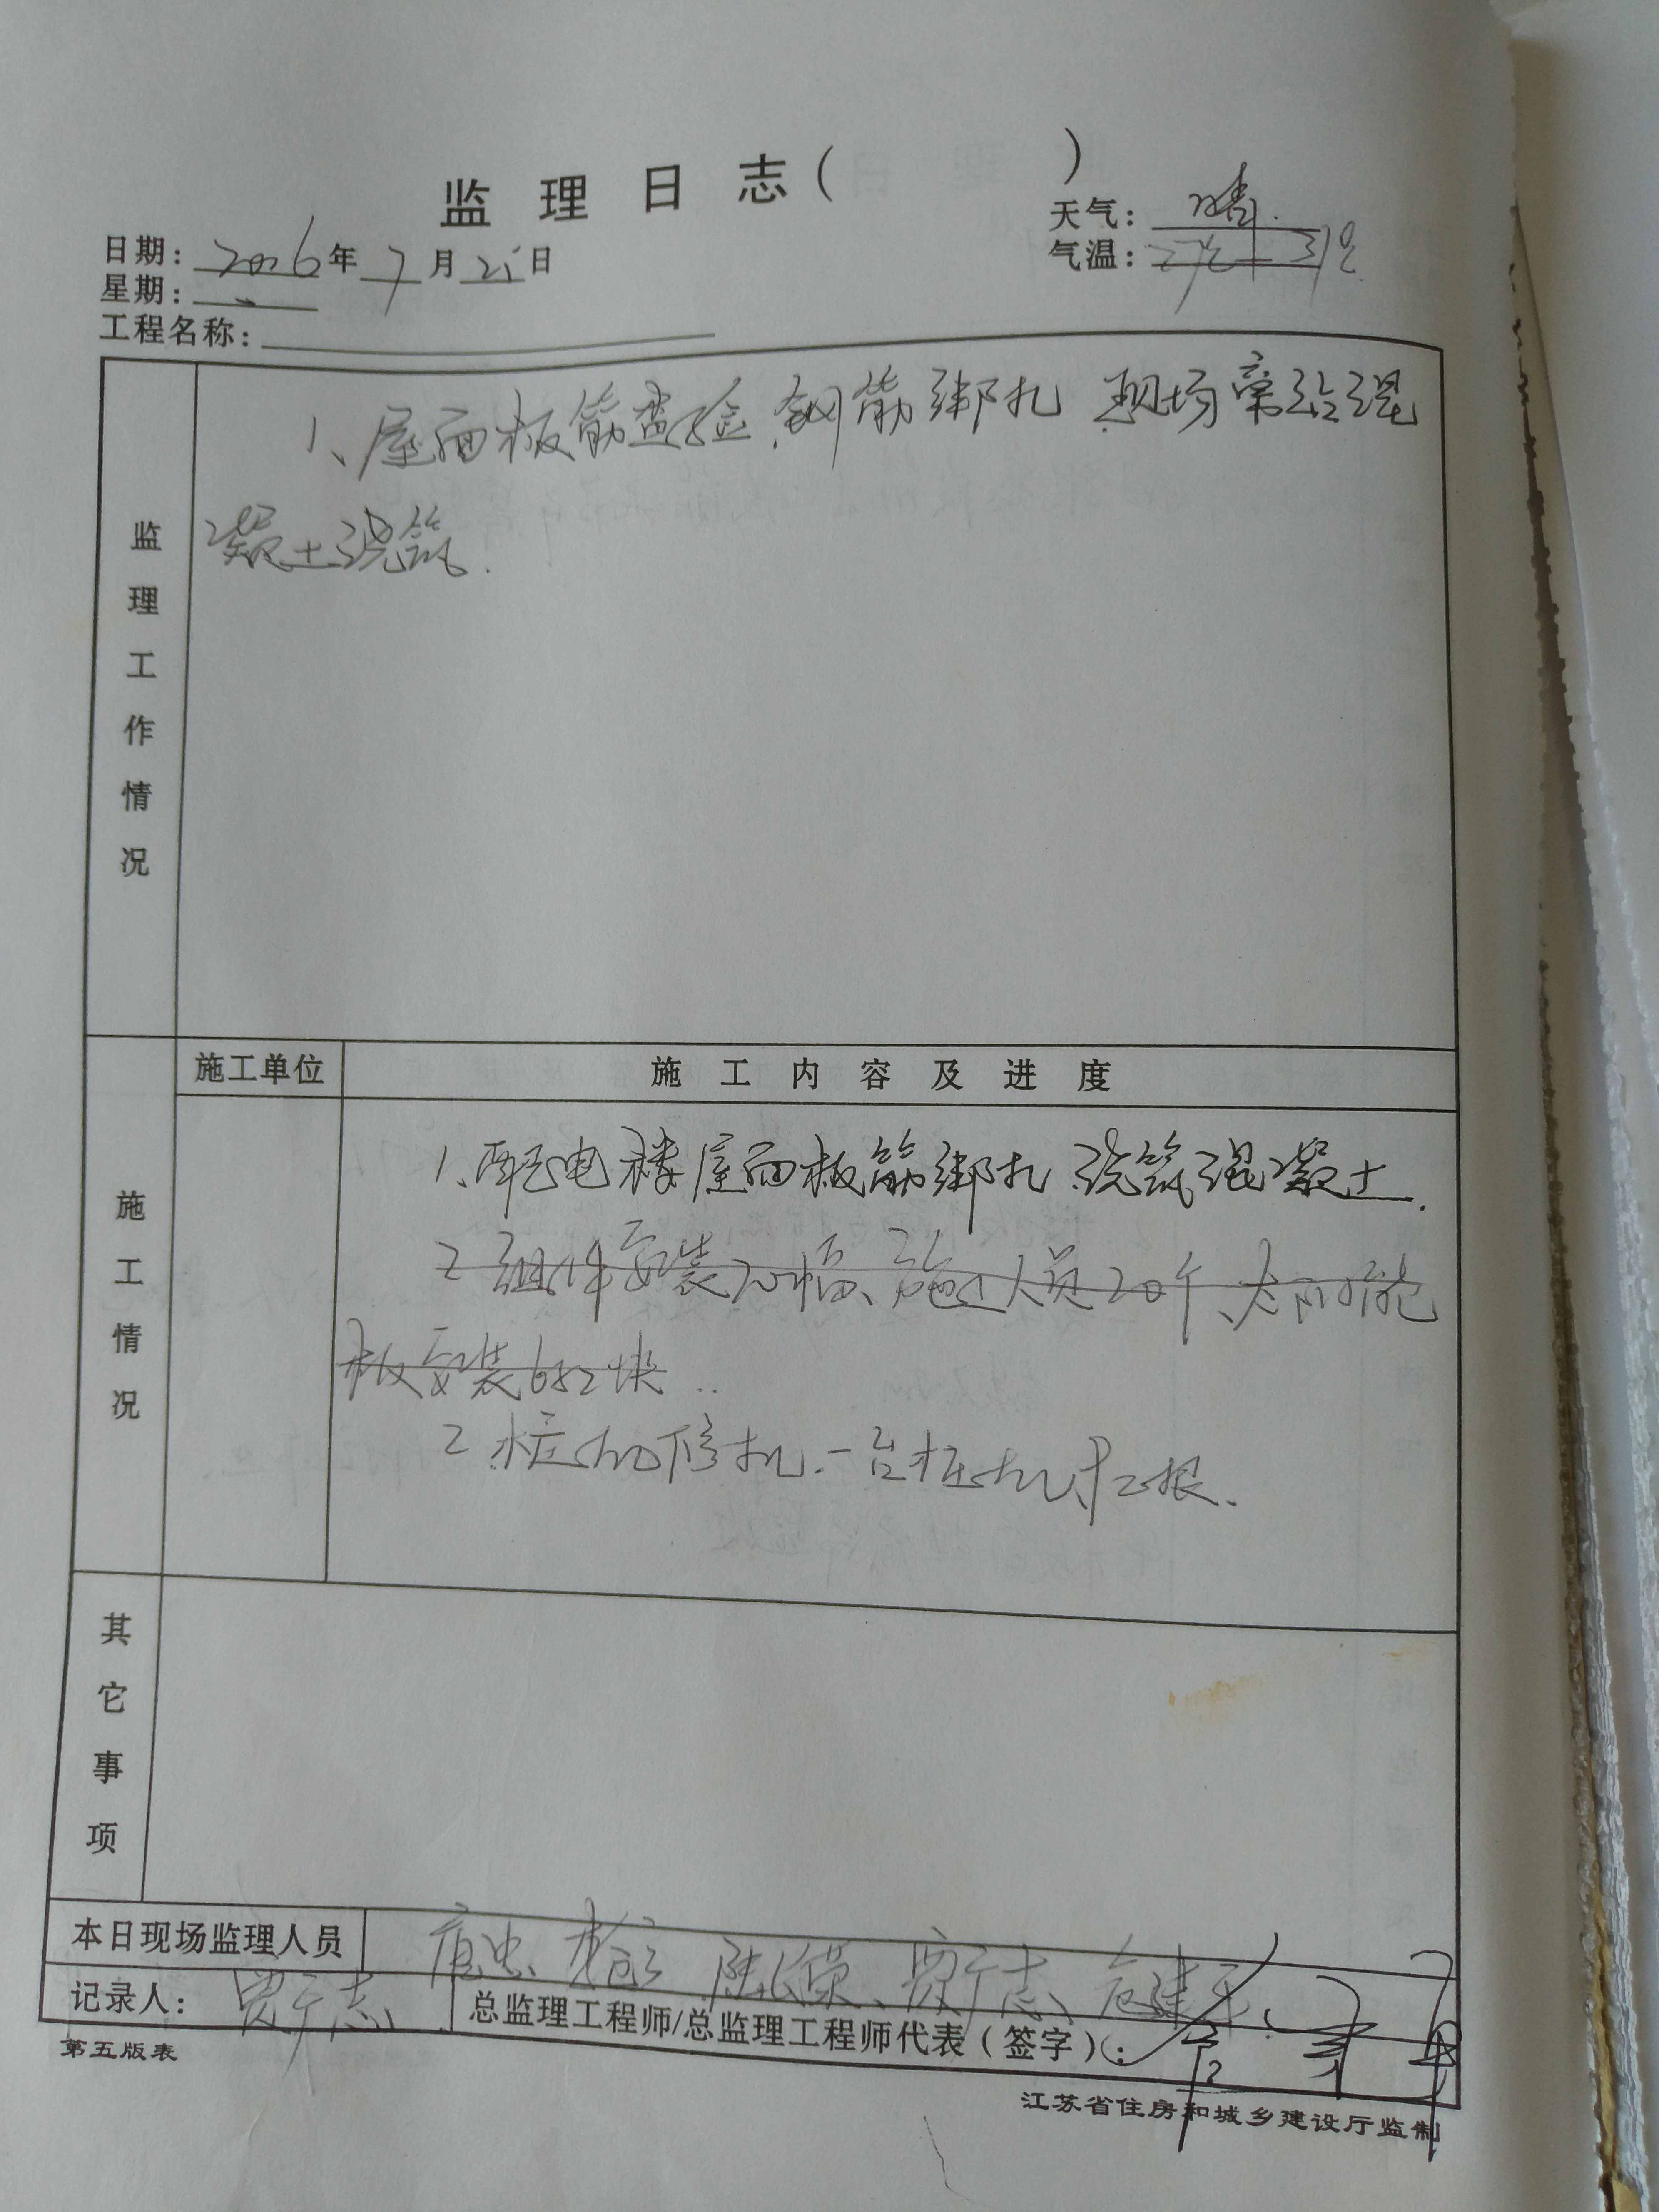 监理日志（ ）
天气：晴
日期：2016年7月25日
气温：27℃ 31℃
星期：一
工程名称：
监理工作情况
1、屋面板筋查验、钢筋绑扎 现场旁站混
凝土浇筑.
施工单位
施工内容及进度
施工情况
1、配电楼屋面板筋绑扎、浇筑混凝土.
2 组件安装20幅、施工人员20个、太阳能
板安装652块..
2 桩机修机.一台桩机打2根.
其它事项
本日现场监理人员
陆长荣、贾于志、
记录人：贾于志
总监理工程师/总监理工程师代表（签字）：
第五版表
江苏省住房和城乡建设厅监制